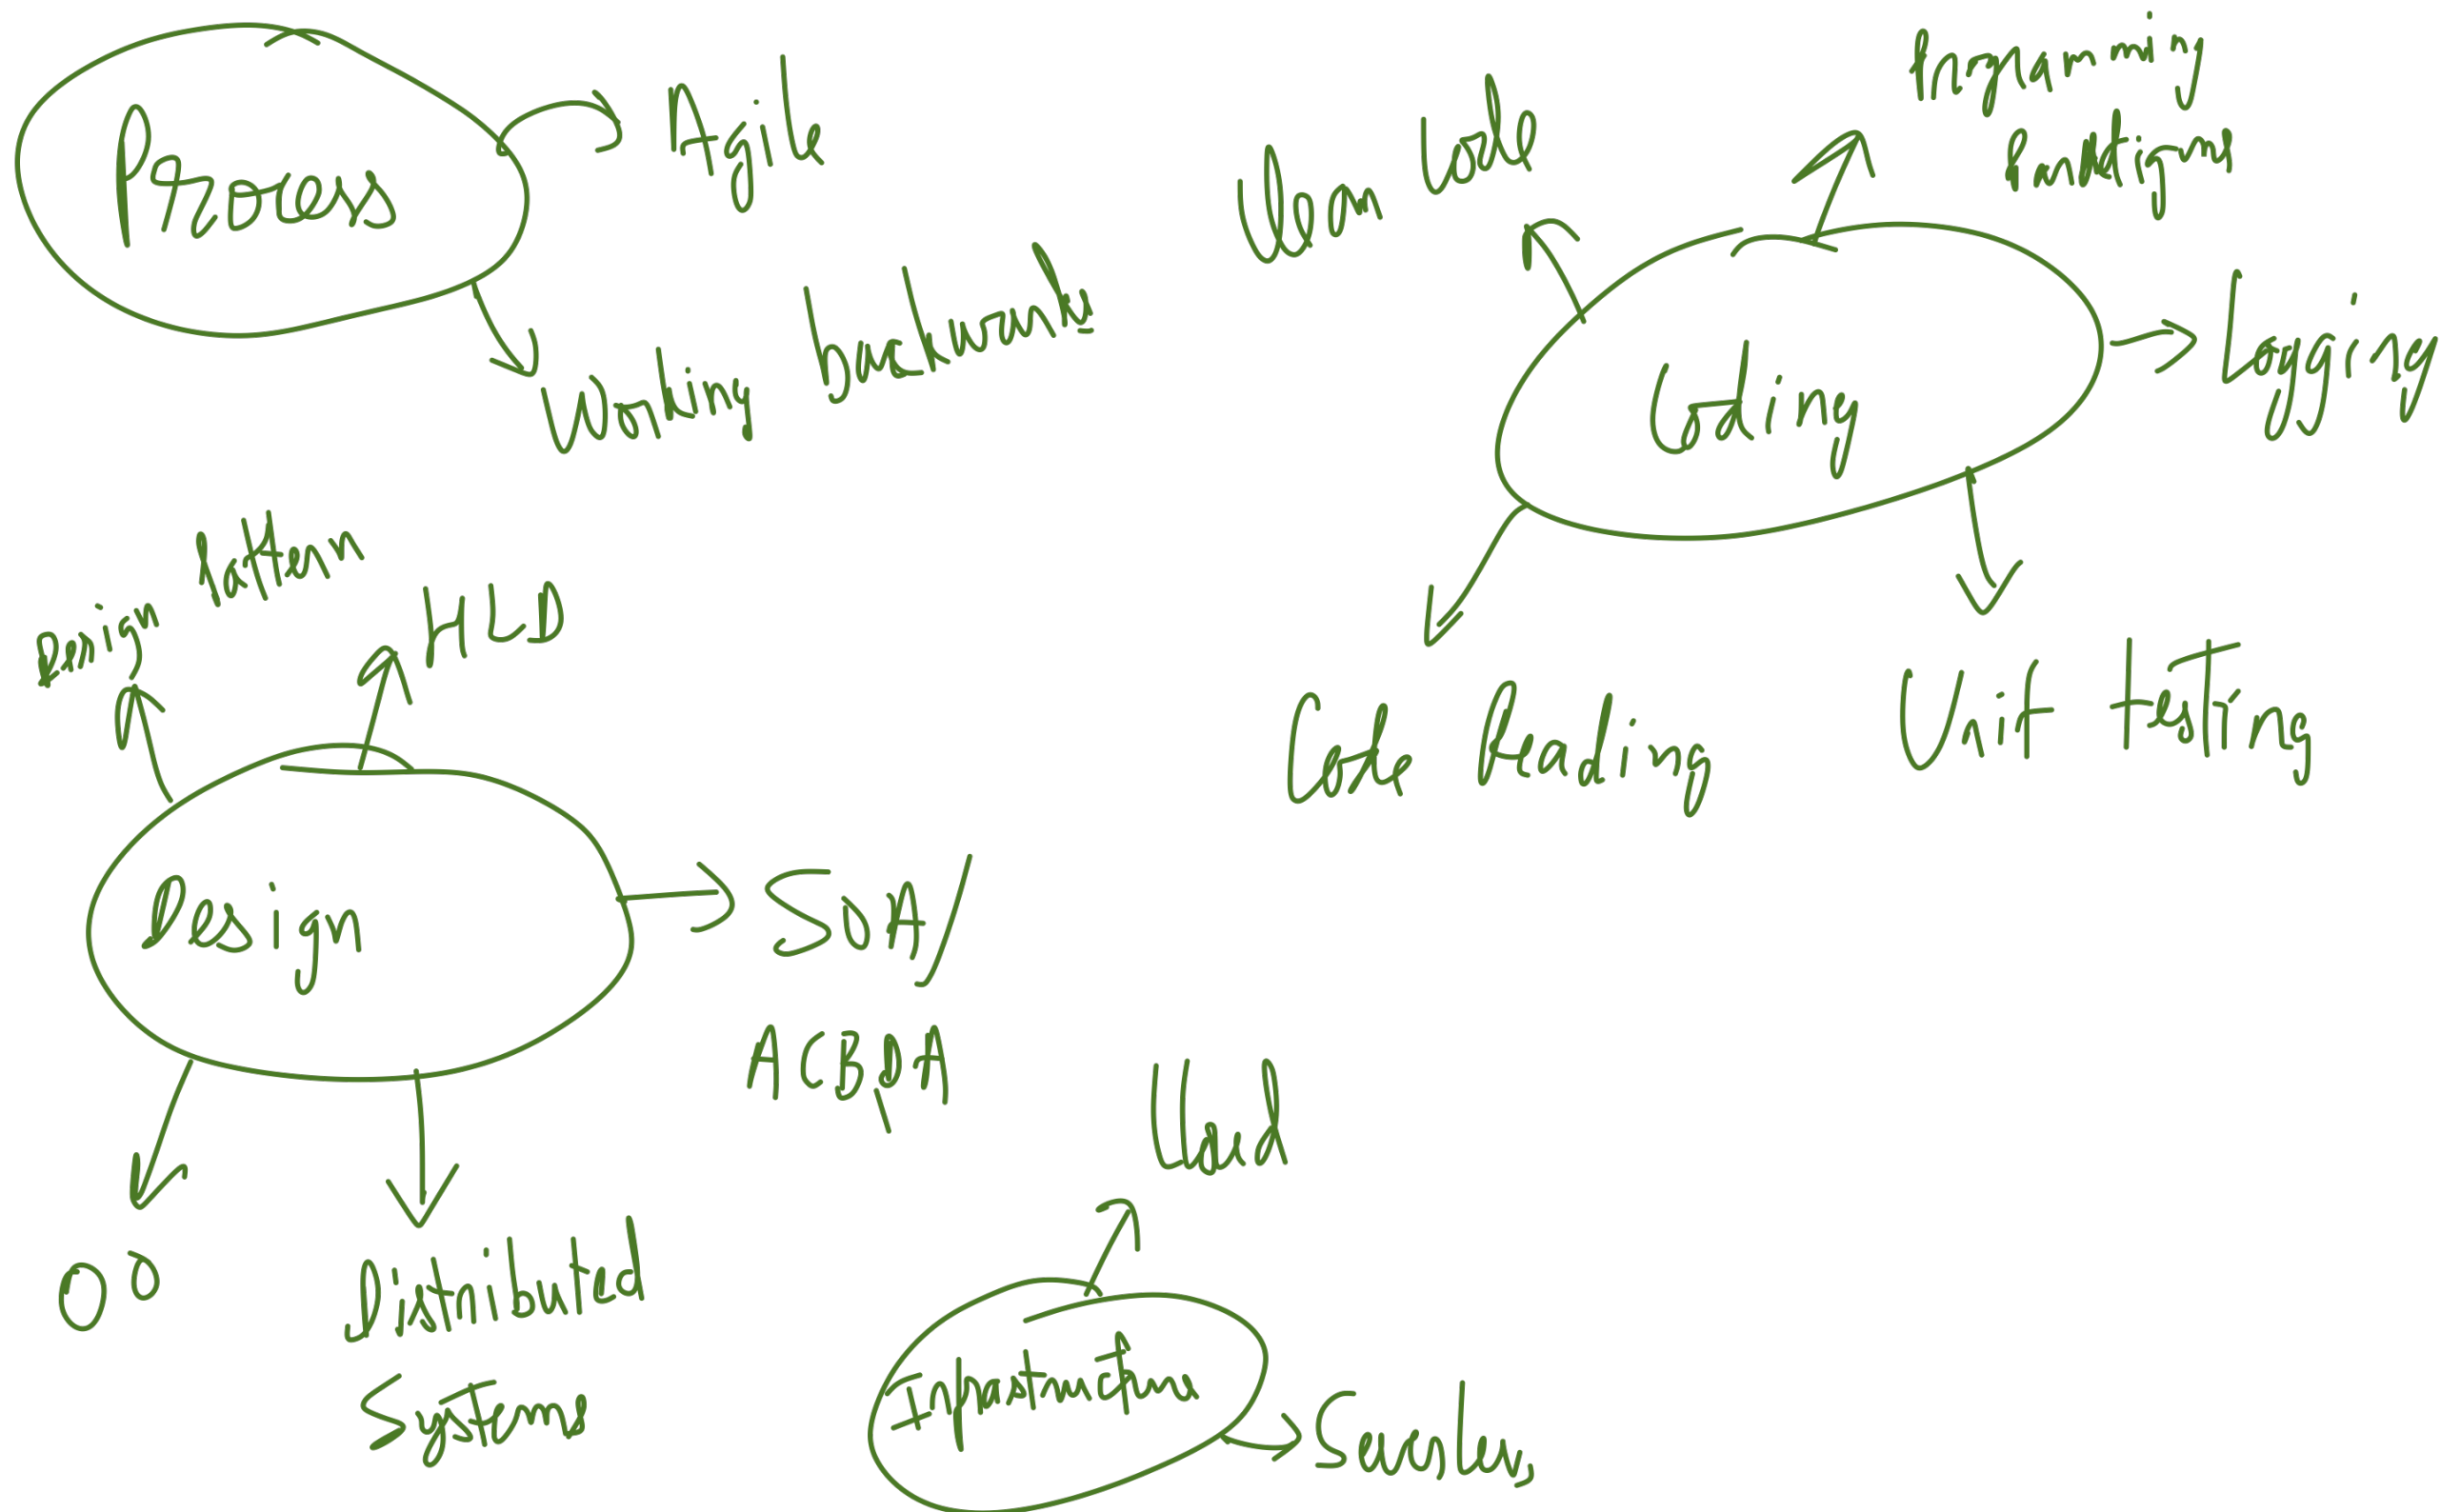 Process
Agile
Working backwards
Clean code
Programming
Paradigms
Coding
Logging
Code Reading
Unit testing
Design Pattern
HLD
Design
SOA/
ACBDA
OO
Distributed
Systems
Cloud
Infrastructure
Serverless